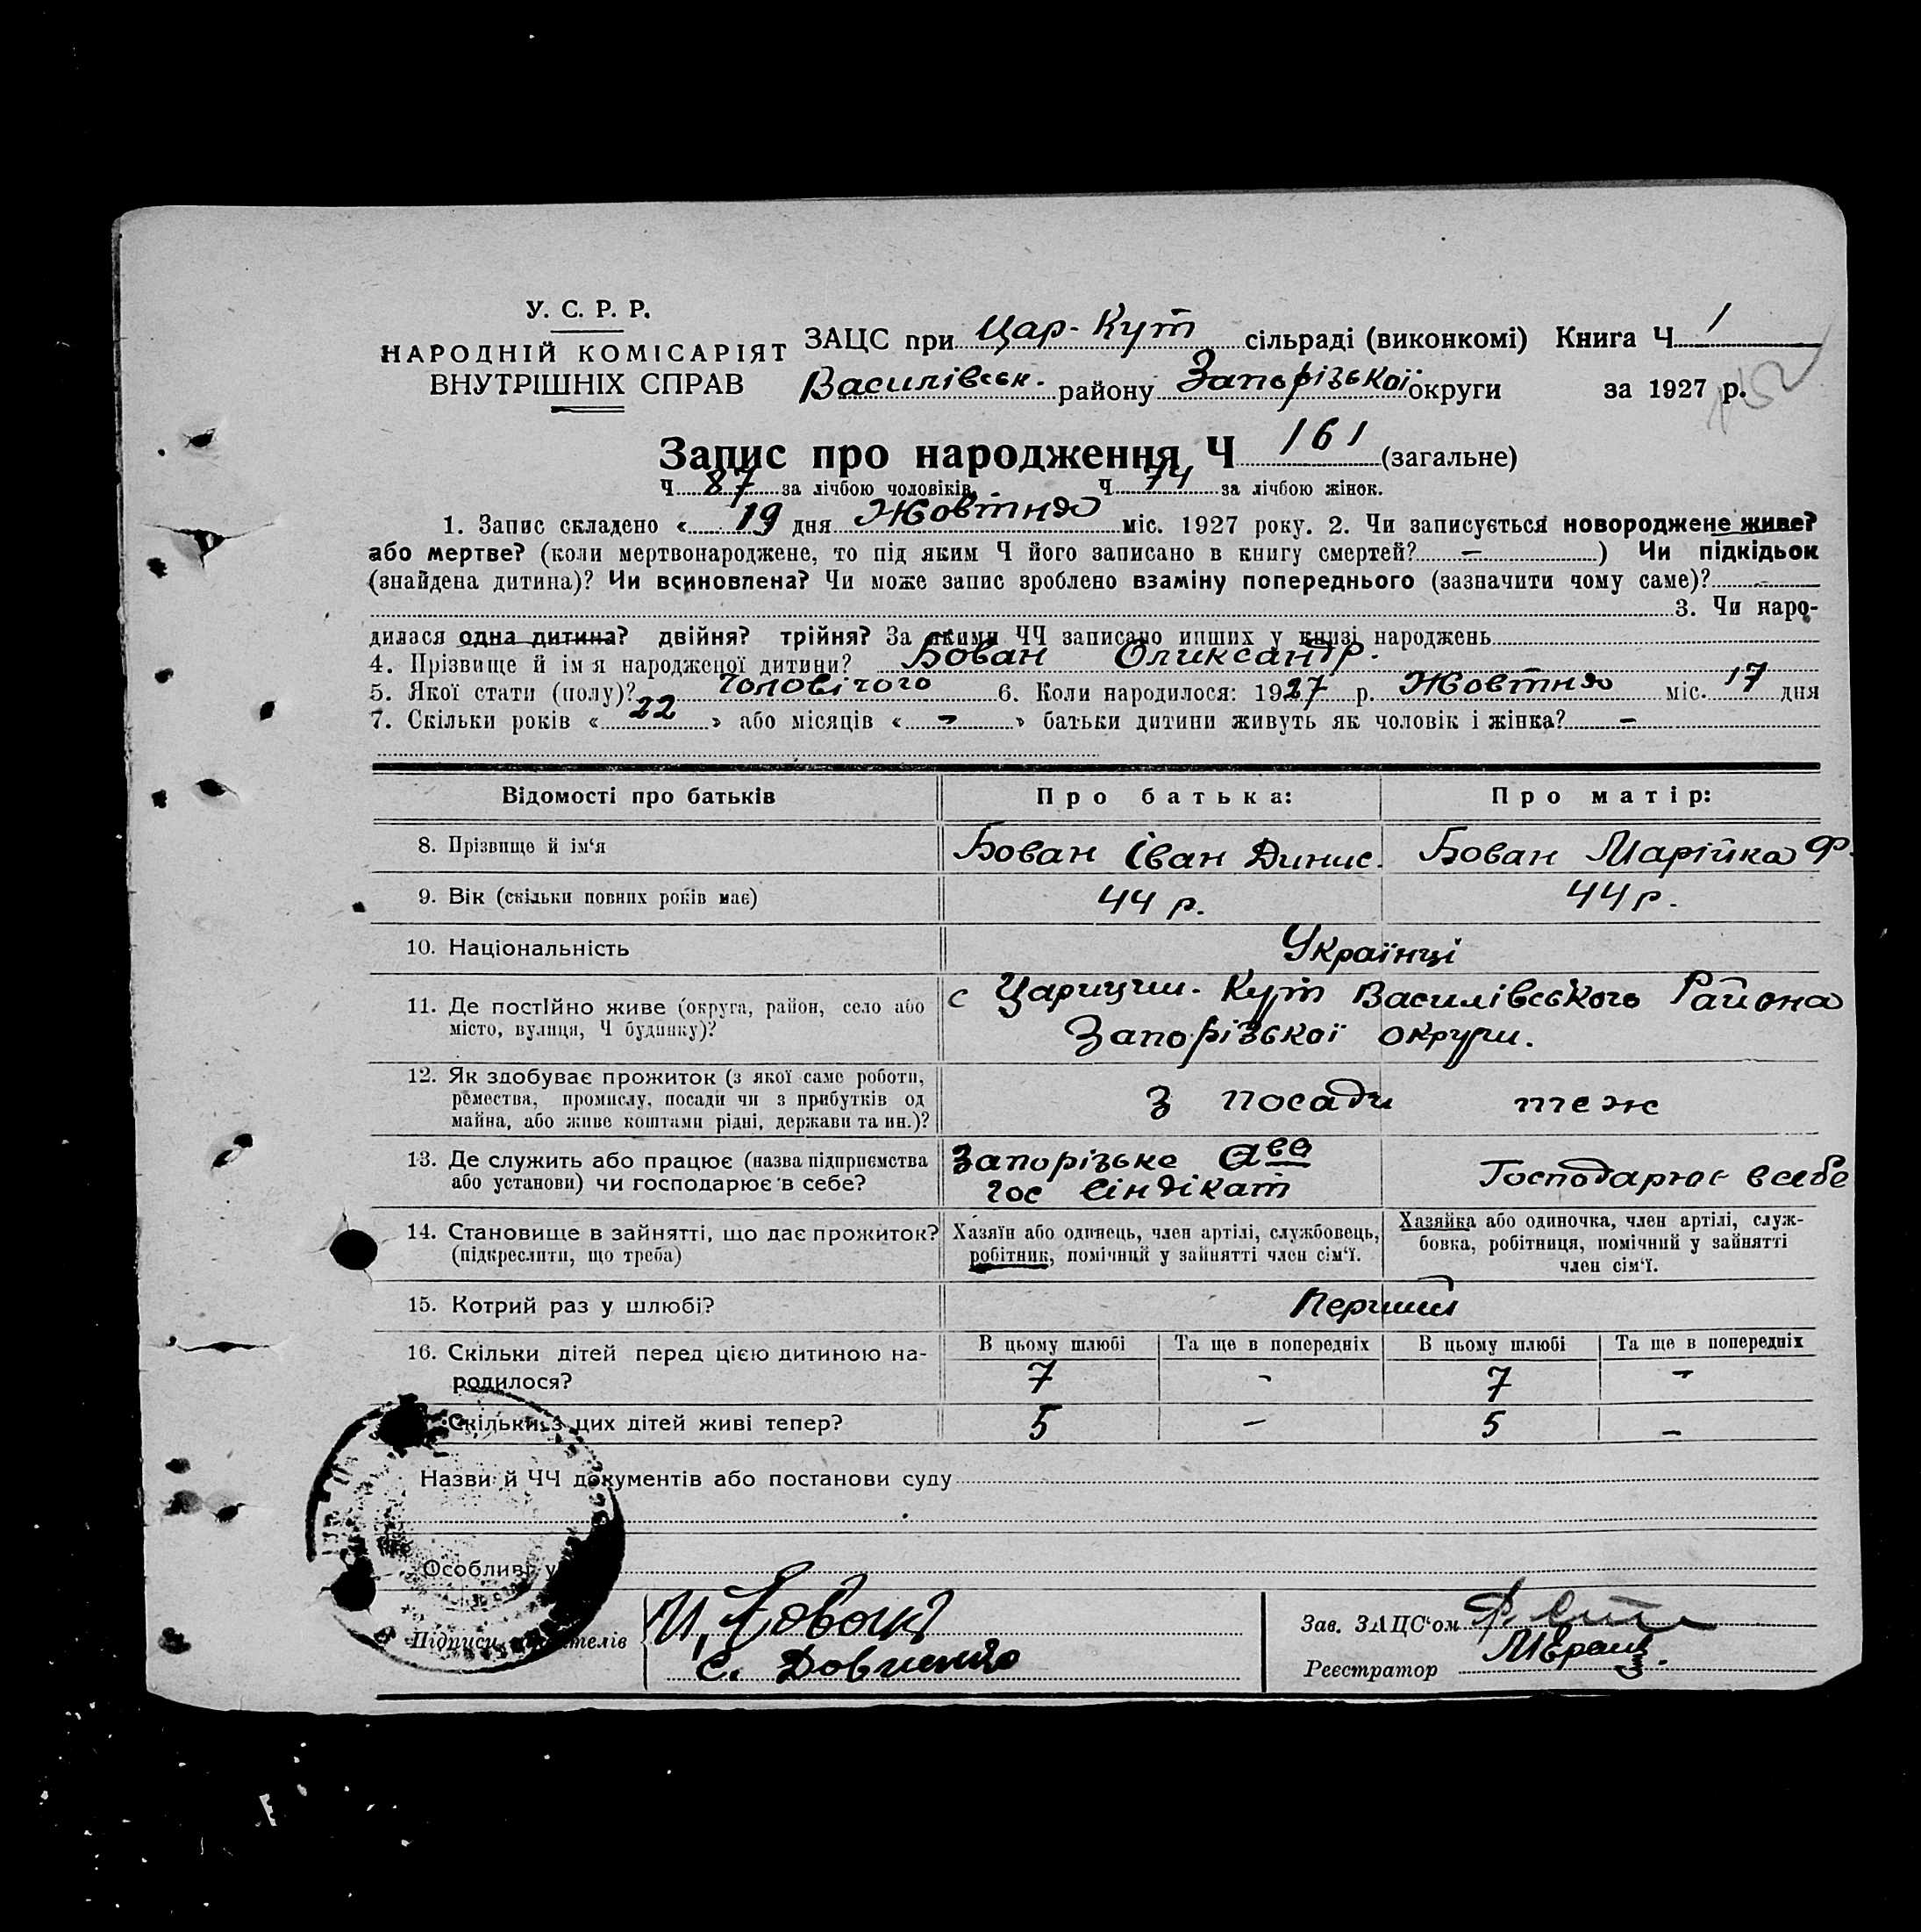 У. С. Р. Р.
НАРОДНІЙ КОМІСАРІЯТ
ВНУТРІШНІХ СПРАВ
ЗАЦС при Цар-Кут сільраді (виконкомі) Книга Ч 1
Василівськ. району Запорізької округи за 1927 р.
Запис про народження Ч 161 (загальне)
Ч 87 за лічбою чоловіків, Ч 74 за лічбою жінок.
1. Запис складено « 19 дня Жовтня міс. 1927 року. 2. Чи записується новороджене живе?
або мертве? (коли мертвонароджене, то під яким Ч його записано в книгу смертей? — ) Чи підкідьок
(знайдена дитина)? Чи всиновлена? Чи може запис зроблено взаміну попереднього (зазначити чому саме)? —
3. Чи наро-
дилася одна дитина? двійня? трійня? За якими ЧЧ записано инших у книзі народжень
4. Прізвище й ім'я народженої дитини? Бован Олександр.
5. Якої стати (полу)? чоловічого 6. Коли народилося: 1927 р. Жовтня міс. 17 дня
7. Скільки років « 22 » або місяців « – » батьки дитини живуть як чоловік і жінка? –
Відомості про батьків Про батька: Про матір:
8. Прізвище й ім'я Бован Іван Динис. Бован Марійка Ф.
9. Вік (скільки повних років має) 44 р. 44 р.
10. Національність Українці
11. Де постійно живе (округа, район, село або с Царицин-Кут Василівського Района
місто, вулиця, Ч будинку)? Запорізької округи.
12. Як здобуває прожиток (з якої саме роботи,
ремества, промислу, посади чи з прибутків од з посади теж
майна, або живе коштами рідні, держави та ин.)?
13. Де служить або працює (назва підприємства Запорізьке
або установи) чи господарює в себе? гос Сіндікат Господарює в себе
14. Становище в зайнятті, що дає прожиток? Хазяїн або одинець, член артілі, службовець, Хазяйка або одиночка, член артілі, служ-
(підкреслити, що треба) робітник, помічний у зайнятті член сім'ї. бовка, робітниця, помічний у зайнятті
член сім'ї.
15. Котрий раз у шлюбі? Перший
16. Скільки дітей перед цією дитиною на- В цьому шлюбі Та ще в попередніх В цьому шлюбі Та ще в попередніх
родилося? 7 - 7 -
Скільки з цих дітей живі тепер? 5 - 5 -
Назви й ЧЧ документів або постанови суду
Особливі у
Підписи телів
С. Довженко
Зав. ЗАЦС'ом
Реєстратор